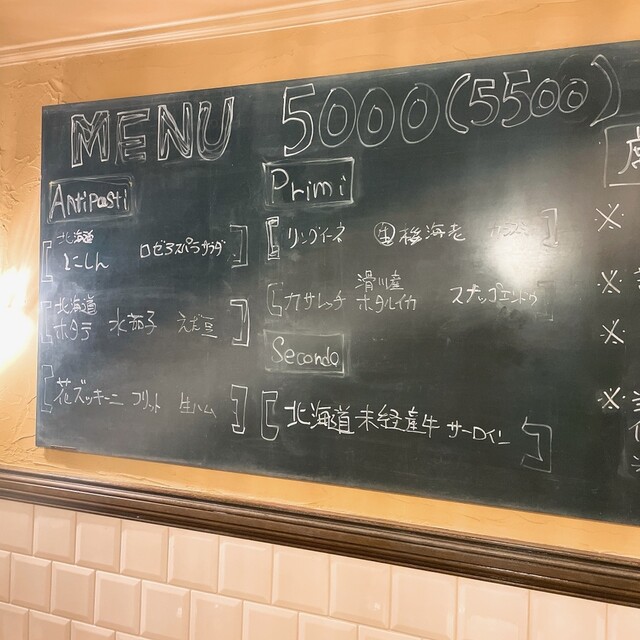 MENU 5000(5500)
Antipasti
北海道
にしん ロゼアスパラ サラダ
北海道
ホタテ 水茄子 えだ豆
花ズッキーニ フリット 生ハム
Primi
リングイーネ 生 桜海老
滑川産
カサレッチ ホタルイカ スナップエンドウ
Secondo
北海道 未経産牛 サーロイン
※
※
※
※